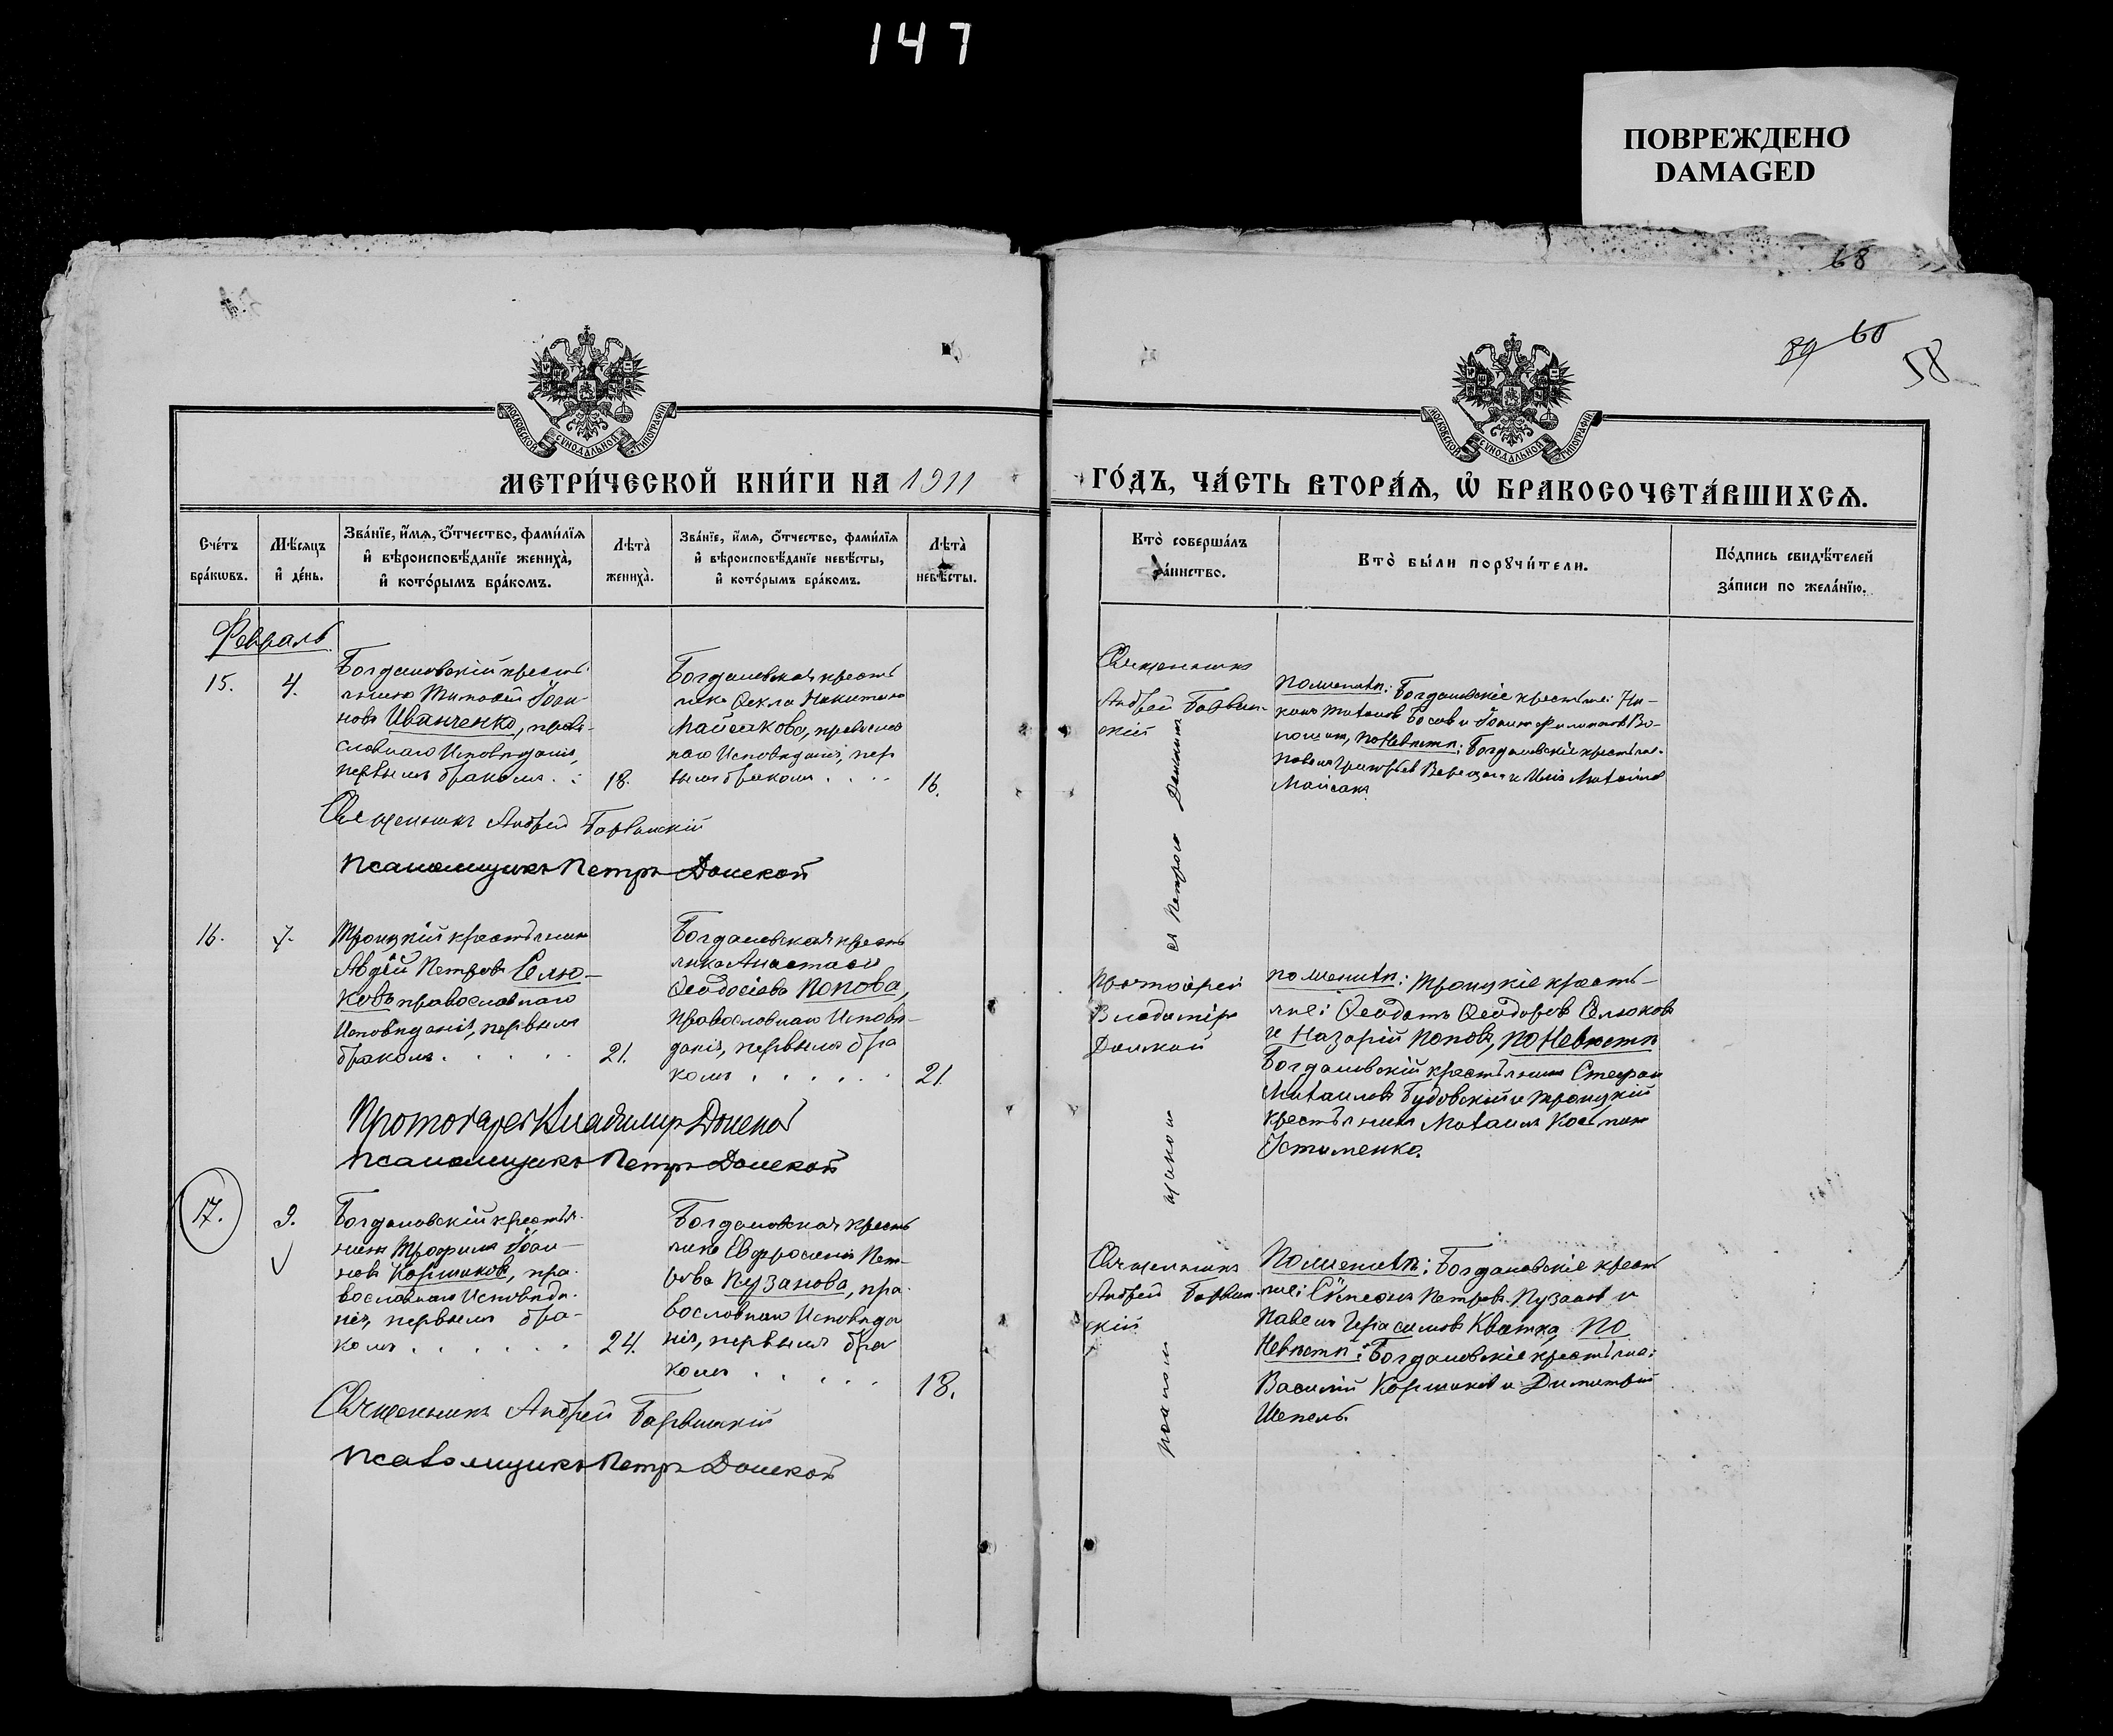 147
ПОВРЕЖДЕНО
DAMAGED
68
89 60
58
МОСКОВСКОЙ СѴНОДАЛЬНОЙ ТИПОГРАФІИ
МОСКОВСКОЙ СѴНОДАЛЬНОЙ ТИПОГРАФІИ
МЕТРИ́ЧЕСКОЙ КНИ́ГИ НА 1911
ГО́ДЪ, ЧА́СТЬ ВТОРА́Ѧ, Ѡ҆ БРАКОСОЧЕТА́ВШИХСѦ.
Сче́тъ
бра́кѡвъ.
Мѣ́сѧцъ
и҆ де́нь.
Зва́нїе, и҆́мѧ, ѻ҆́тчество, фами́лїѧ
и҆ вѣроисповѣ́данїе жениха̀,
и҆ кото́рымъ бра́комъ.
Лѣта̀
жениха̀.
Зва́нїе, и҆́мѧ, ѻ҆́тчество, фами́лїѧ
и҆ вѣроисповѣ́данїе невѣ́сты,
и҆ кото́рымъ бра́комъ.
Лѣта̀
невѣ́сты.
Кто̀ соверша́лъ
та́инство.
Кто̀ бы́ли порꙋчи́тели.
По́дпись свидѣ́телей
за́писи по жела́нїю.
Февраль
15.
4.
Богдановскій кресть-
янинъ Тимофей Іоан-
новъ Иванченко, право-
славнаго Исповѣданія,
первымъ бракомъ . :
18.
Богдановская кресть
янка Ѳекла Никитина
Майсакова, православ
наго Исповѣданія, пер
вымъ бракомъ . . . .
16.
Священникъ
Андрей Барвин-
скій
По женихѣ: Богдановскіе крестьяне: Ни-
конъ
Босовъ и Іоаннъ Филиповъ Во-
по Невѣстѣ: Богдановскіе крестьяне.
Павелъ Григорьев и Илія Михаиловъ
Майсакъ
Священникъ Андрей Барвинскій
Псаломщикъ Петръ Донской
16.
7.
Троицкій крестьянинъ
Авдій Петровъ Селю-
ковъ православнаго
Исповѣданія, первымъ
бракомъ. . . . .
21.
Богдановская кресть
янка Анастасія
Ѳеодосіева Попова,
православнаго Исповѣ-
данія, первымъ бра
комъ . . . . . .
21.
Протоіерей
Владиміръ
Донской
по женихѣ: Троицкіе кресть-
яне: Ѳеодотъ Ѳеодоровъ Селюковъ
и Назарій Поповъ, по Невѣстѣ
Богдановскій крестьянинъ Стефан
Михаиловъ Будовскій и Троицкій
крестьянинъ Михаилъ
Устименко.
Протоіерей Владимиръ Донской
Псаломщикъ Петръ Донской
17.
9.
Богдановскій крестья-
нинъ Трофимъ Іоан-
новъ Коршиковъ, пра-
вославнаго Исповѣда-
нія, первымъ бра-
комъ . . . . . .
24.
Богдановская кресть
янка Евфросинія Пет-
рова Пузанова, пра-
вославнаго Исповѣда
нія, первымъ бра
комъ . . . . .
18.
Священникъ
Андрей Барвин-
скій
По женихѣ: Богдановскіе кресть
яне: Сѵмеонъ Петровъ Пузановъ и
Павелъ Герасимовъ Кватка, По
Невѣстѣ: Богдановскіе крестьяне:
Василій Коршиковъ и Димитрій
Шепель.
Священникъ Андрей Барвинскій
Псаломщикъ Петръ Донской
съ Петромъ
Донским